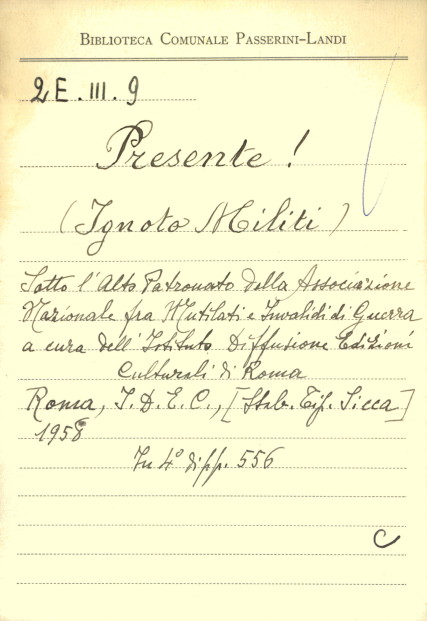 BIBLIOTECA COMUNALE PASSERINI-LANDI
2E.III.9
Presente!
(Ignoto Militi)
Sotto l'Alto Patronato della Associazione
Nazionale fra Mutilati e Invalidi di Guerra
a cura dell'Istituto Diffusione Edizioni
Culturali di Roma
Roma, I.D.E.C., [Stab. Tip. Sicca]
1958
In 4° di pp. 556
C